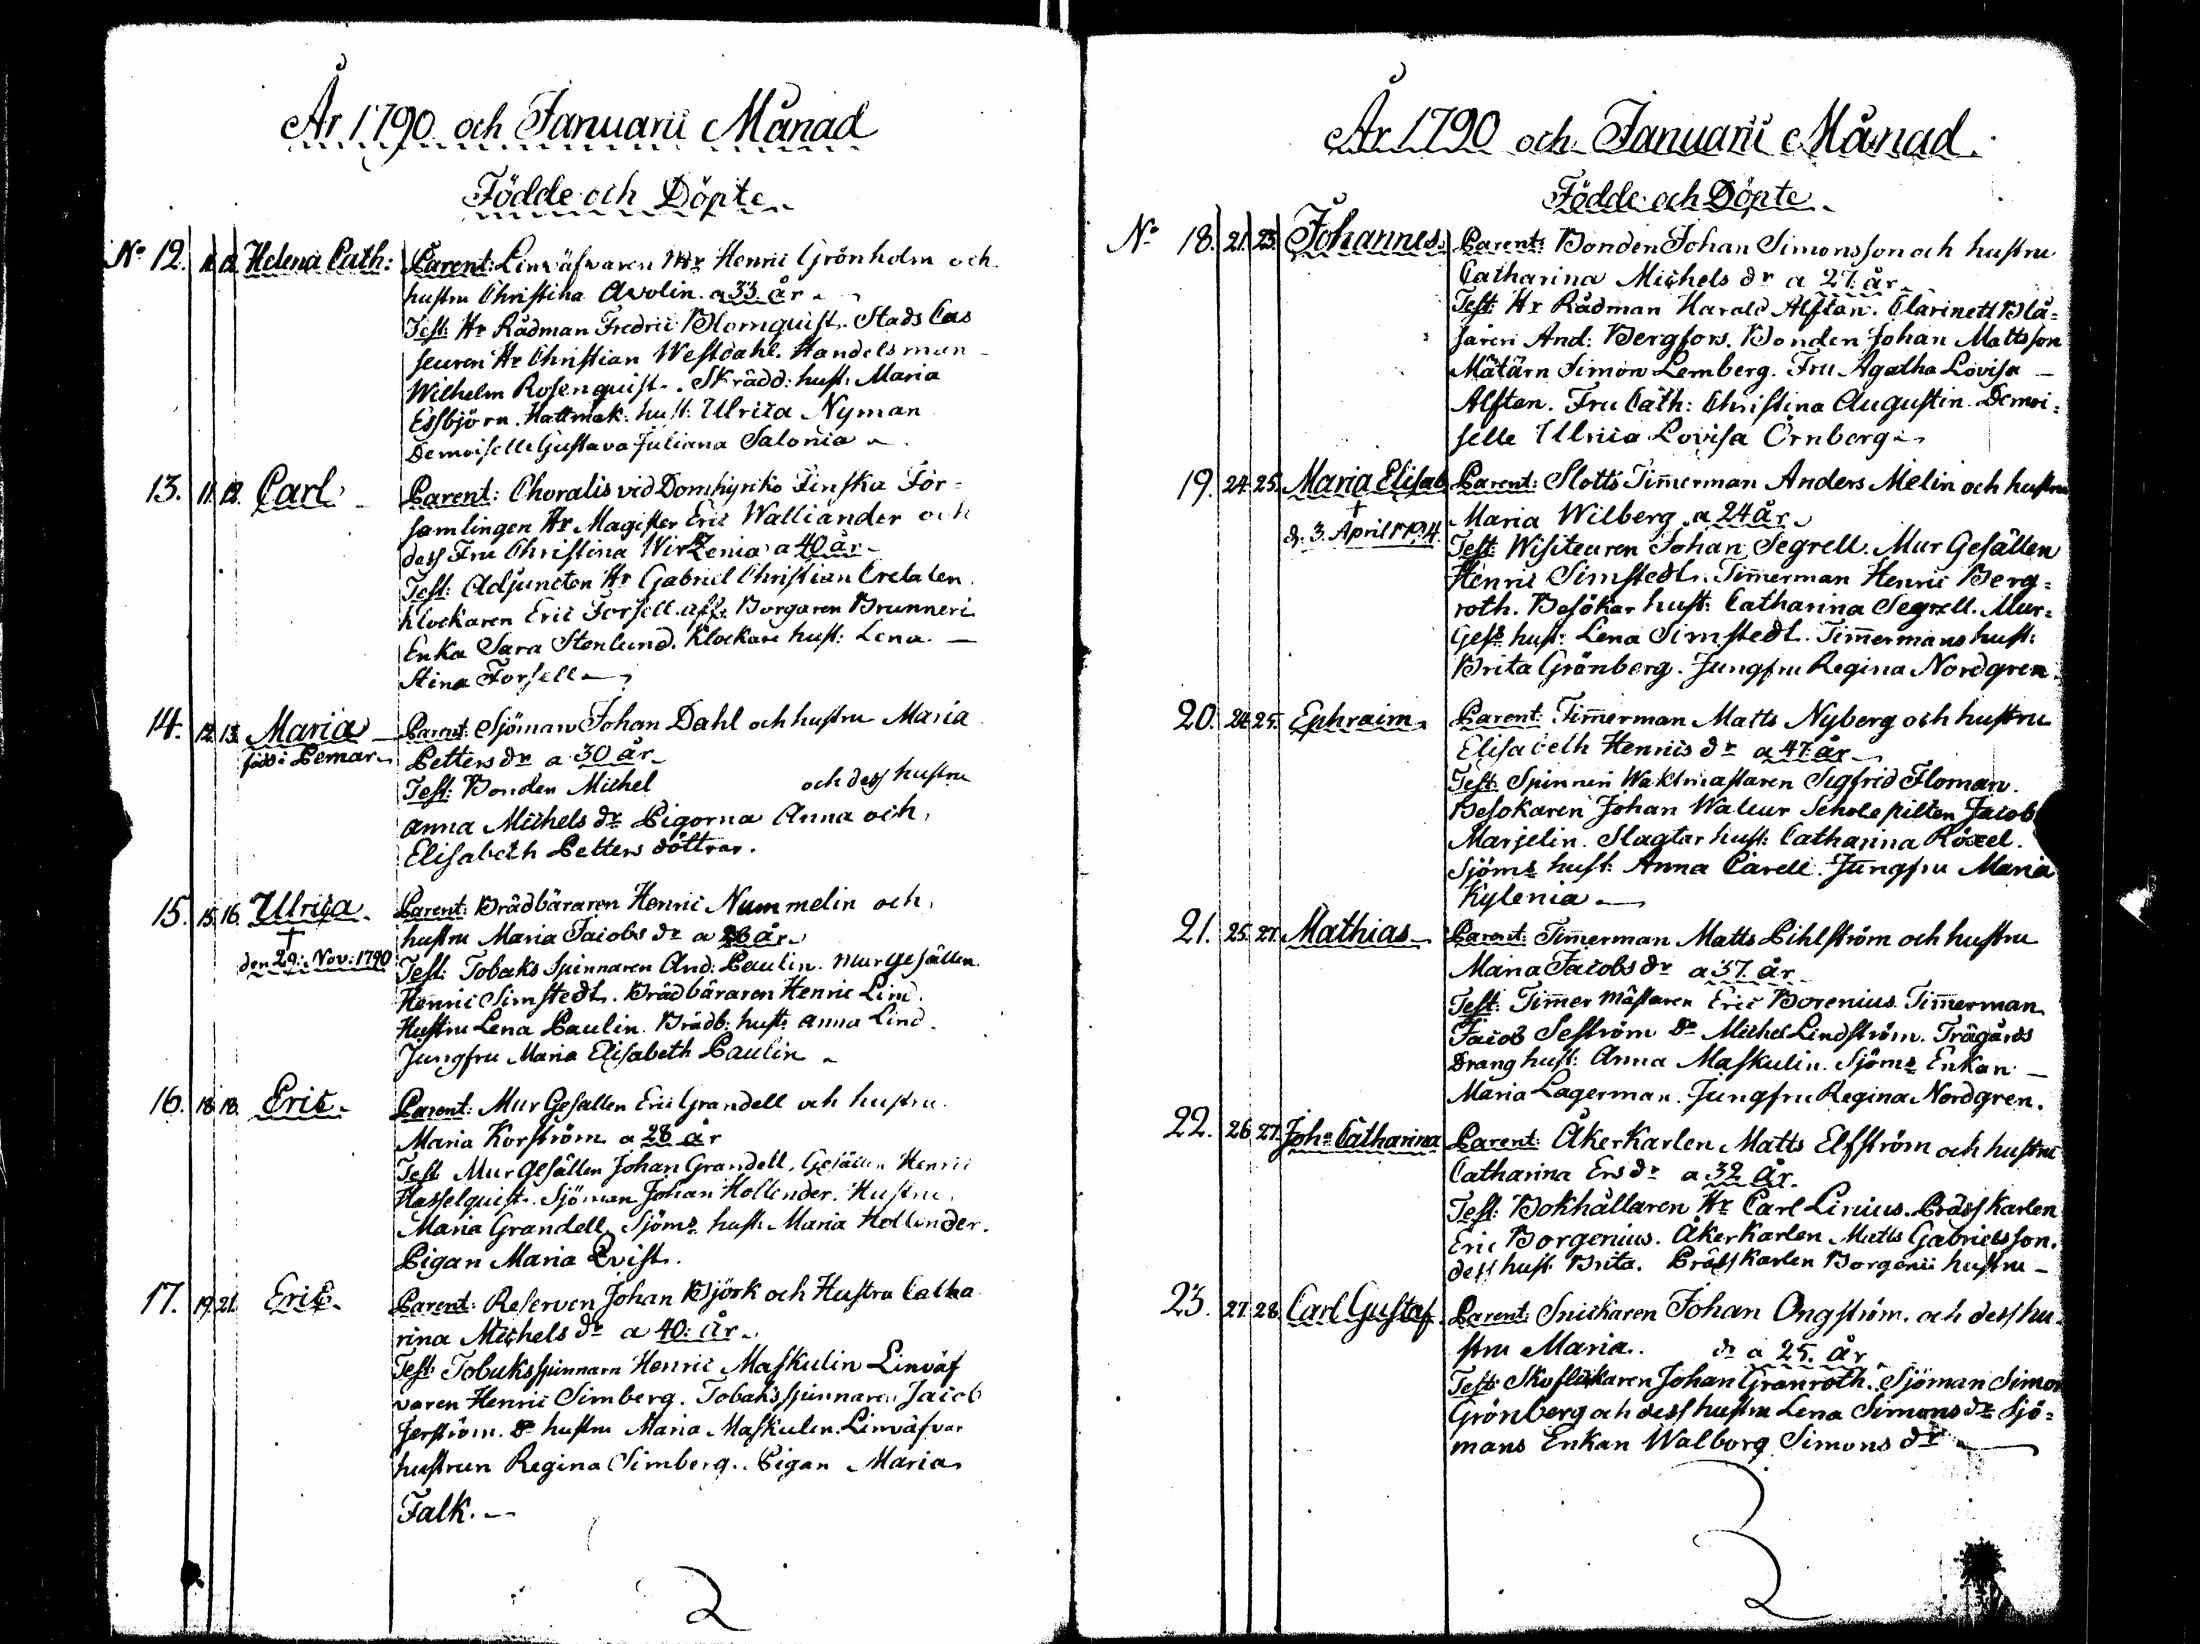 År 1790 och Januarii Månad
Födde och Döpte
No 12. 11. 12. Helena Cath: Parent: Linväfvaren Mr Henric Grönholm och
hustru Christina Avolin a 33 år
Test: Hr Rådman Fredric Blomquist. Stads Cas
seuren Hr Christian Westdahl. Handelsman
Wilhelm Rosenquist. Skrädd: hust: Maria
Essbjörn. Hattmak: hust: Ulrica Nyman
Demoiselle Gustava Juliana Salonia
13. 11. 12. Carl Parent: Choralis vid Domkyrko Finska För-
samlingen Hr Magister Eric Walliander och
dess Fru Christina Wirzenia a 40 år
Test: Adjuncten Hr Gabriel Christian Cretalen.
Klockaren Eric Forsell. Borgaren Brunneri
Enka Sara Stenlund. Klockare hust: Lena
Stina Forsell
14. 12. 13. Maria Parent: Sjöman Johan Dahl och hustru Maria
född i Pemar Petters dr a 30 år
Test: Bonden Michel och dess hustru
Anna Michels dr Pigorna Anna och
Elisabeth Petters döttrar.
15. 15. 16. Ulrica Parent: Brädbäraren Henric Nummelin och
† hustru Maria Jacobs dr a 26 år
den 29. Nov: 1790 Test: Tobaks Spinnaren And: Paulin. Murgesällen
Henric Simstedt. Brädbäraren Henric Lind.
Hustru Lena Paulin. Brädb: hust: Anna Lind.
Jungfru Maria Elisabeth Paulin
16. 18. 18. Eric Parent: Mur Gesällen Eric Grandell och hustru
Maria Korström a 28 år
Test: Mur Gesällen Johan Grandell. Gesällen Henric
Hasselquist. Sjöman Johan Hollender. Hustru
Maria Grandell Sjöms hust: Maria Hollender.
Pigan Maria Qvist.
17. 19. 21. Eric Parent: Reserven Johan Björk och Hustru Catha
rina Michels dr a 40 år
Test: Tobaksspinnarn Henric Maskulin Linväf
varen Henric Simberg. Tobaksspinnaren Jacob
Jerström. Do hustru Maria Maskulin. Linväfvar
hustrun Regina Simberg. Pigan Maria
Falk.
2
År 1790 och Januarii Månad.
Födde och Döpte
No 18. 21. 23. Johannes. Parent: Bonden Johan Simonsson och hustru
Catharina Michels dr a 27 år
Test: Hr Rådman Harald Alftan. Clarinett Blå-
saren And: Bergfors. Bonden Johan Mattsson
Mätärn Simon Lemberg. Fru Agatha Lovisa
Alftan. Fru Cath: Christina Augustin. Demoi-
selle Ulrica Lovisa Örnberg
19. 24. 25. Maria Elisab Parent: Slotts Tim̄erman Anders Melin och hustru
† Maria Wilberg a 24 år
d. 3. April 1794. Test: Wisiteuren Johan Segrell. Mur Gesällen
Henric Simstedt. Tim̄erman Henric Berg-
roth. Besökar hust: Catharina Segrell. Mur-
Gess hust: Lena Simstedt. Tim̄ermans hust:
Brita Grönberg. Jungfru Regina Nordgren.
20. 24. 25. Ephraim Parent: Tim̄erman Matts Nyberg och hustru
Elisabeth Henrics dr a 47 år
Test: Spinneri Waktmastaren Sigfrid Floman.
Besokaren Johan Waleur Scholepilten Jacob
Marjelin. Slagtar hust: Catharina Röxel.
Sjöms hust: Anna Carell. Jungfru Maria
Kylenia
21. 25. 27. Mathias Parent: Tim̄erman Matts Pihlström och hustru
Maria Jacobs dr a 37 år
Test: Tim̄er mästaren Eric Borenius. Tim̄erman
Jacob Seström Do Michel Lindström. Trägårds
Drang hust: Anna Maskulin. Sjöms Enkan
Maria Lagerman. Jungfru Regina Nordgren.
22. 26. 27. Joha Catharina Parent: Åkerkarlen Matts Elfström och hustru
Catharina Ers dr a 32 år.
Test: Bokhållaren Hr Carl Linius. Prässkarlen
Eric Borgenius. Åkerkarlen Matts Gabrielsson.
dess hust: Brita. Prässkarlen Borgenii hustru
23. 27. 28. Carl Gustaf. Parent: Snickaren Johan Ongström. och dess hu-
stru Maria. dr a 25 år
Test: Skoflickaren Johan Granroth. Sjöman Simon
Grönberg och dess hustru Lena Simons dr Sjö-
mans Enkan Walborg Simons dr
3